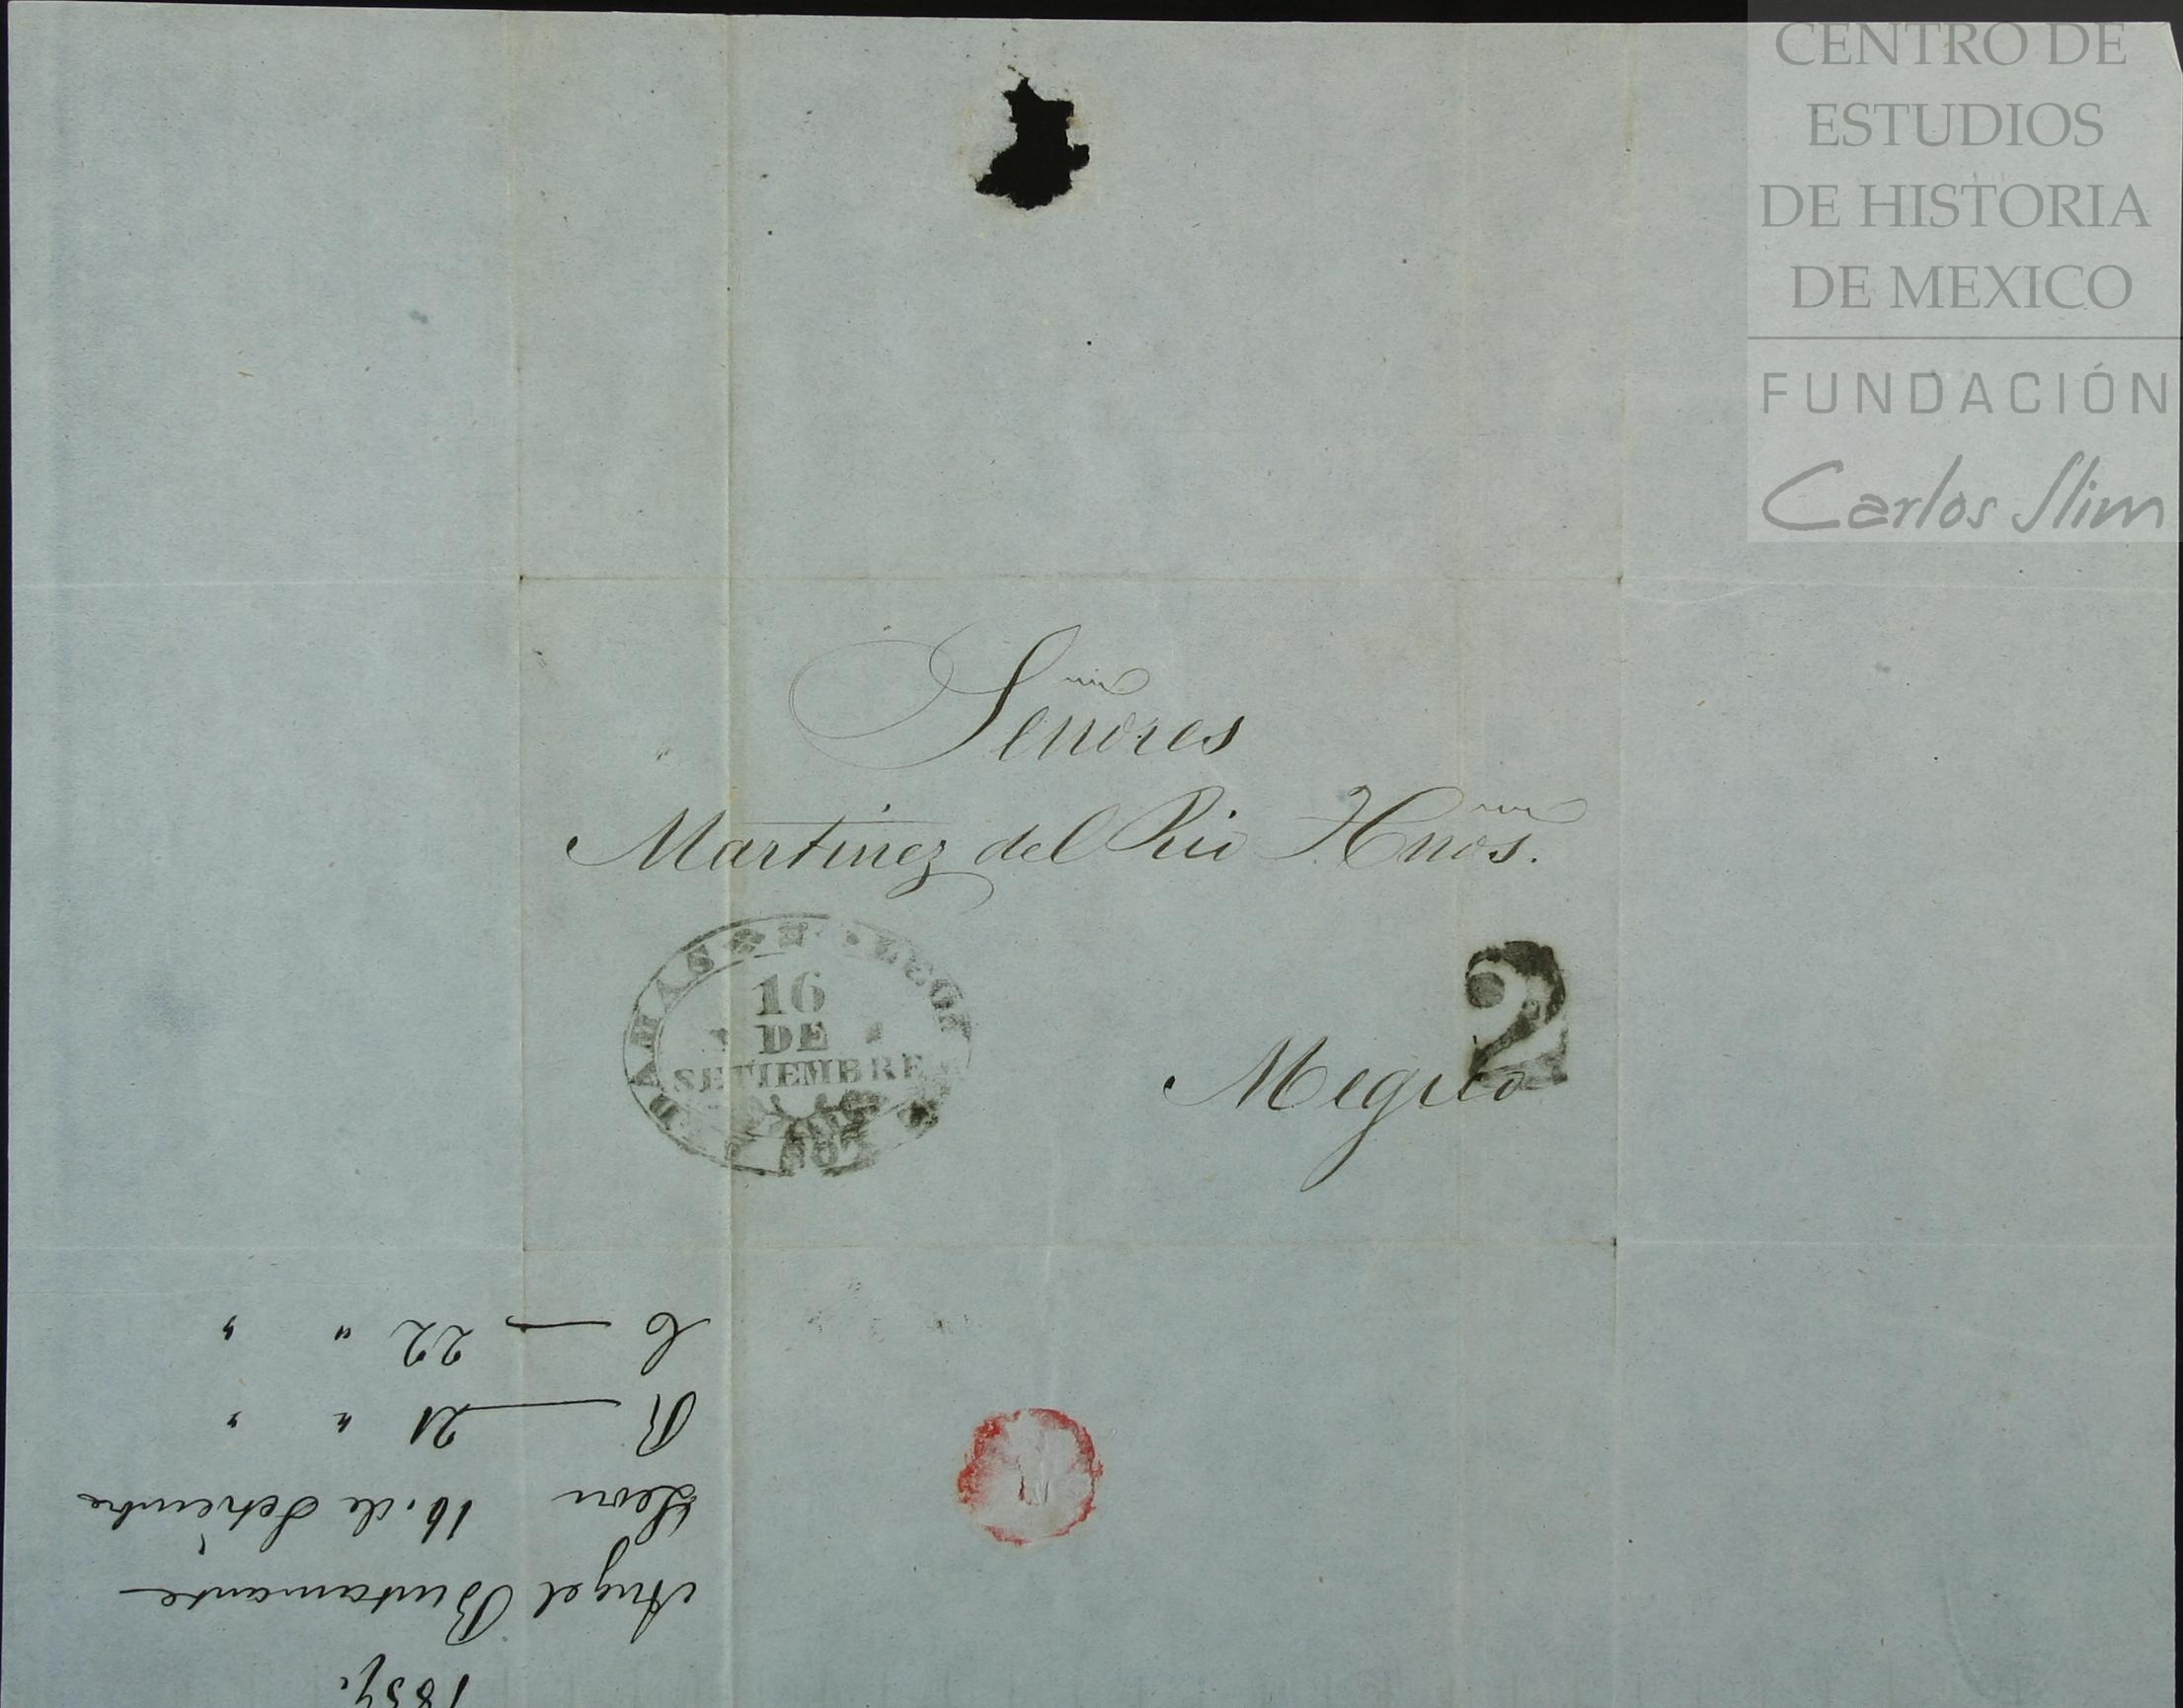 CENTRO DE
ESTUDIOS
DE HISTORIA
DE MEXICO
FUNDACIÓN
Carlos Slim
Señores
Martinez del Rio Hños.
Megico
2
16
DE
SETIEMBRE
Angel Bustamante
Leon 16. de Setiembre
R 21 " "
C 22 " "